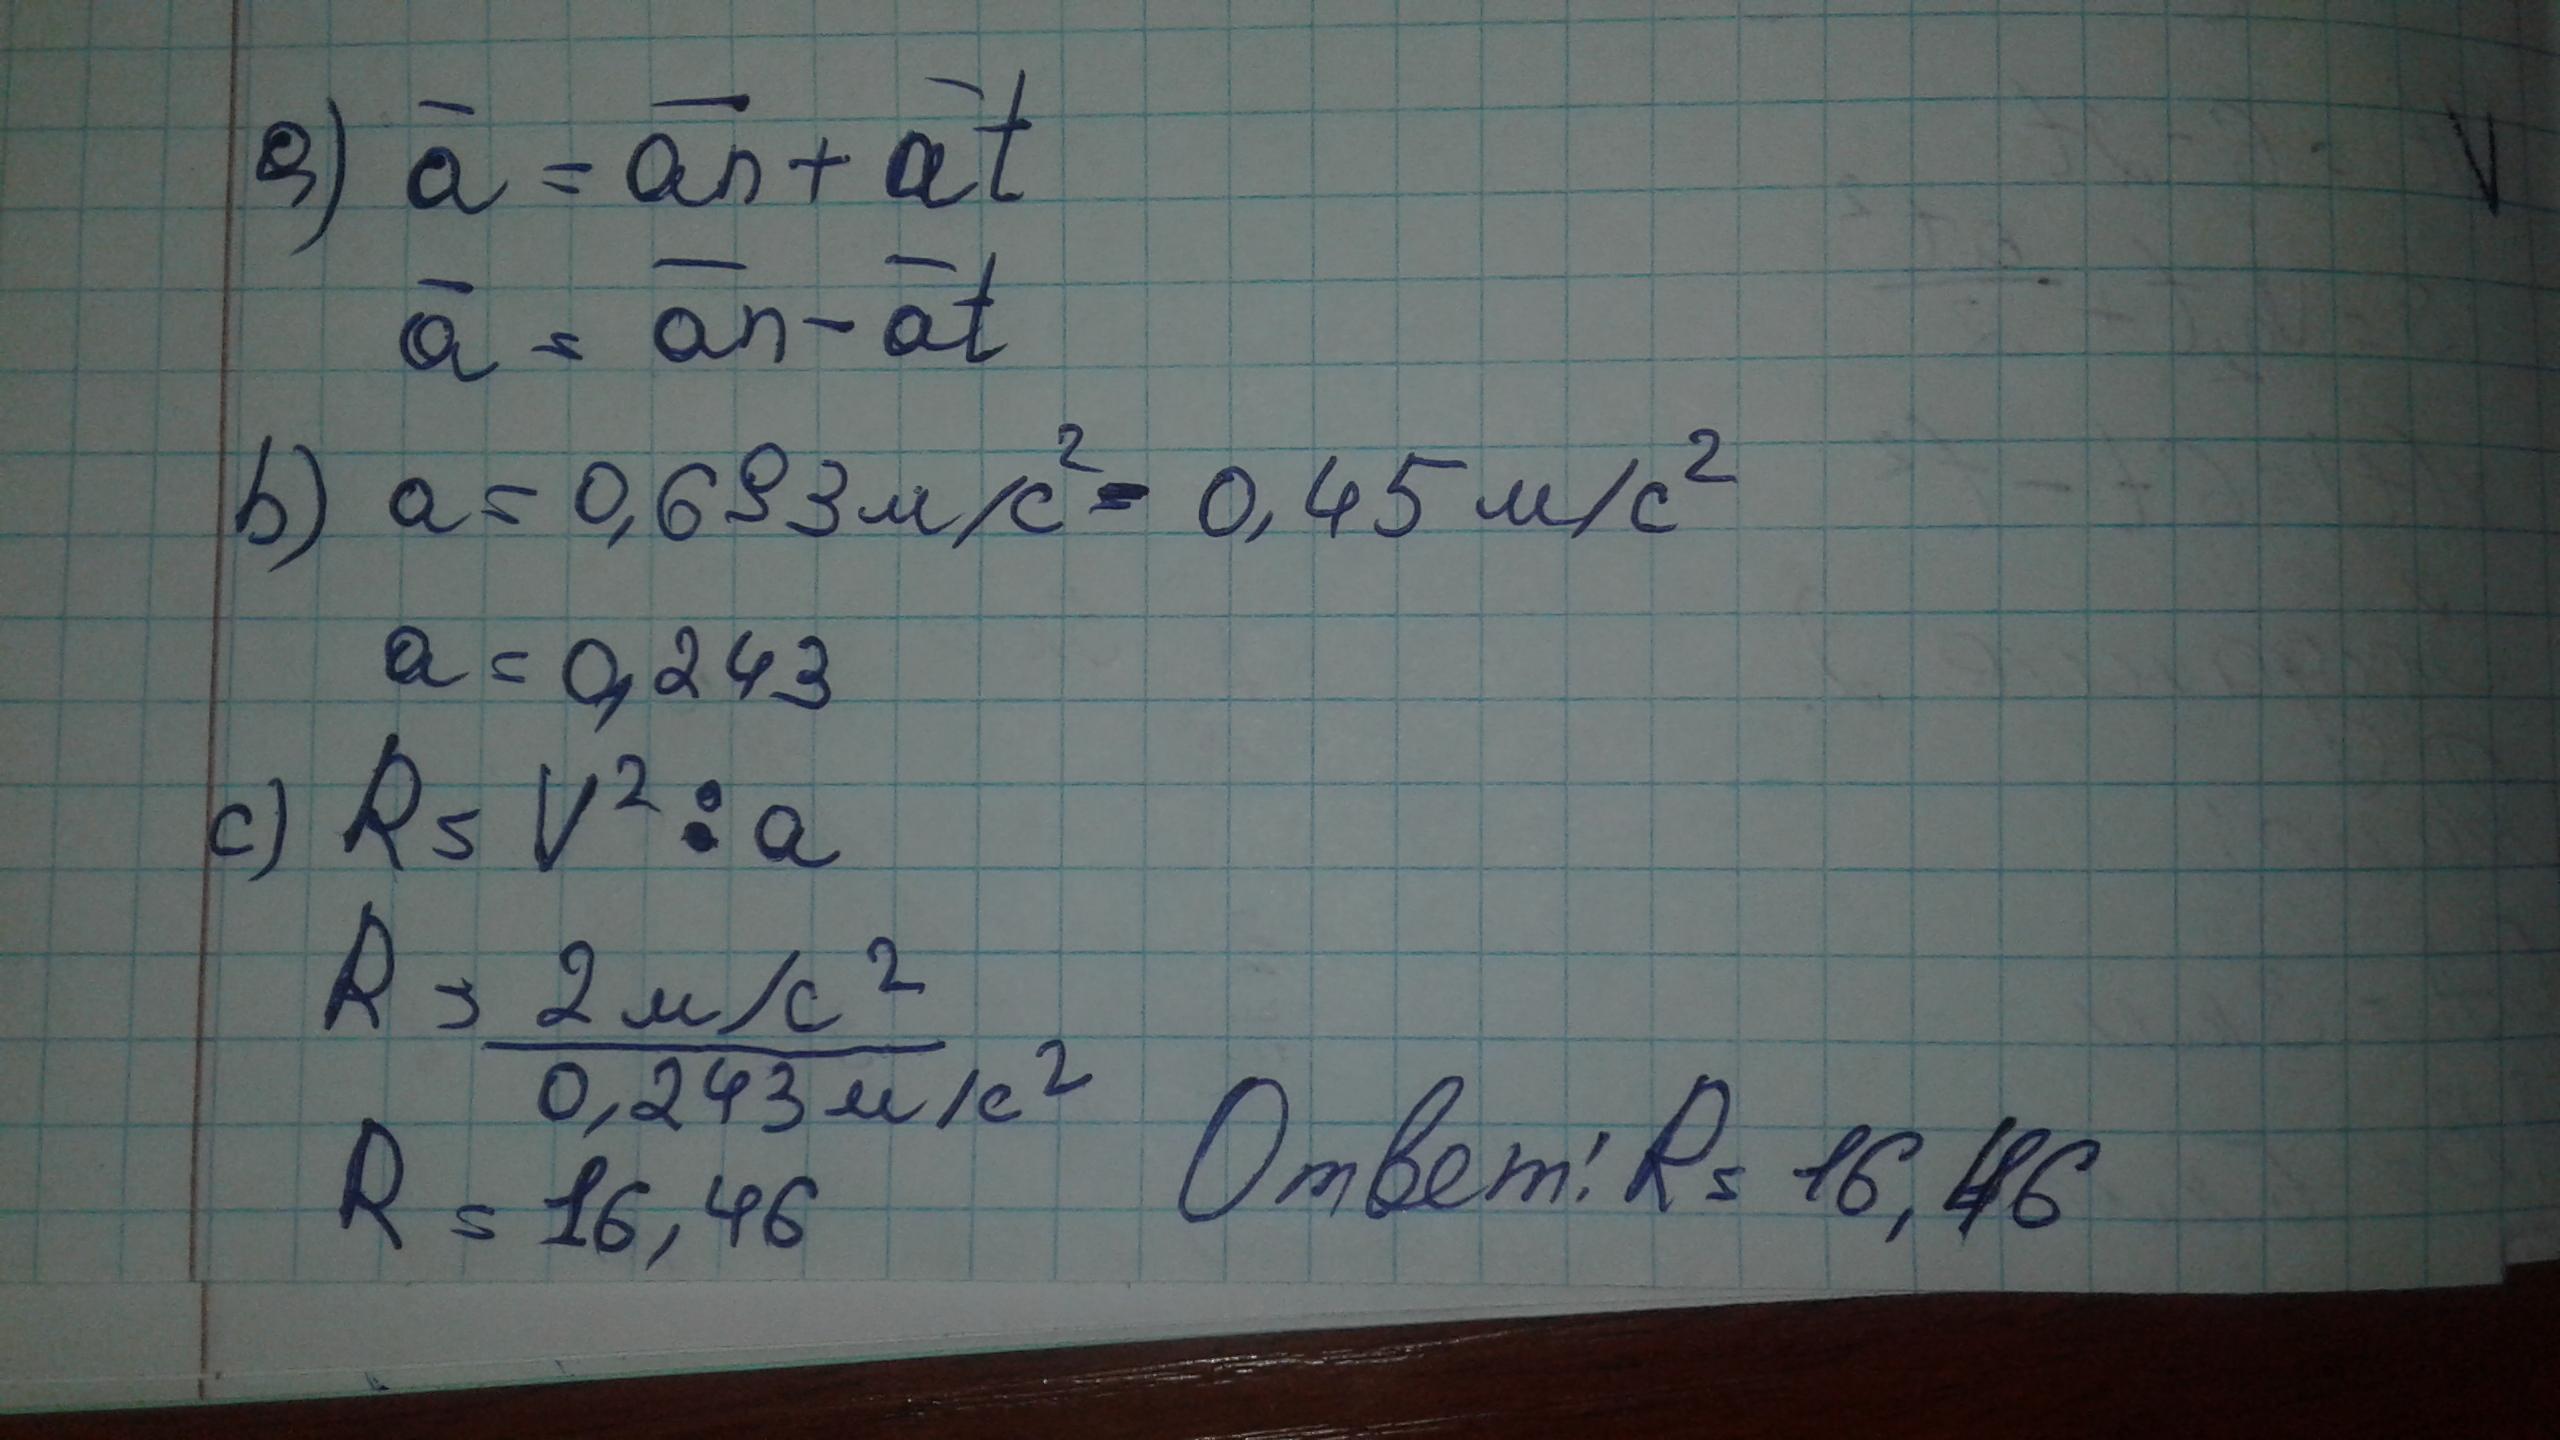 a) a̅ = a̅n̅ + a̅t
a̅ = a̅n̅ - a̅t
b) a = 0,693 м/с² - 0,45 м/с²
a = 0,243
c) R = V² : a
R = 2 м/с² / 0,243 м/с²
R = 16,46
Ответ: R = 16,46
V